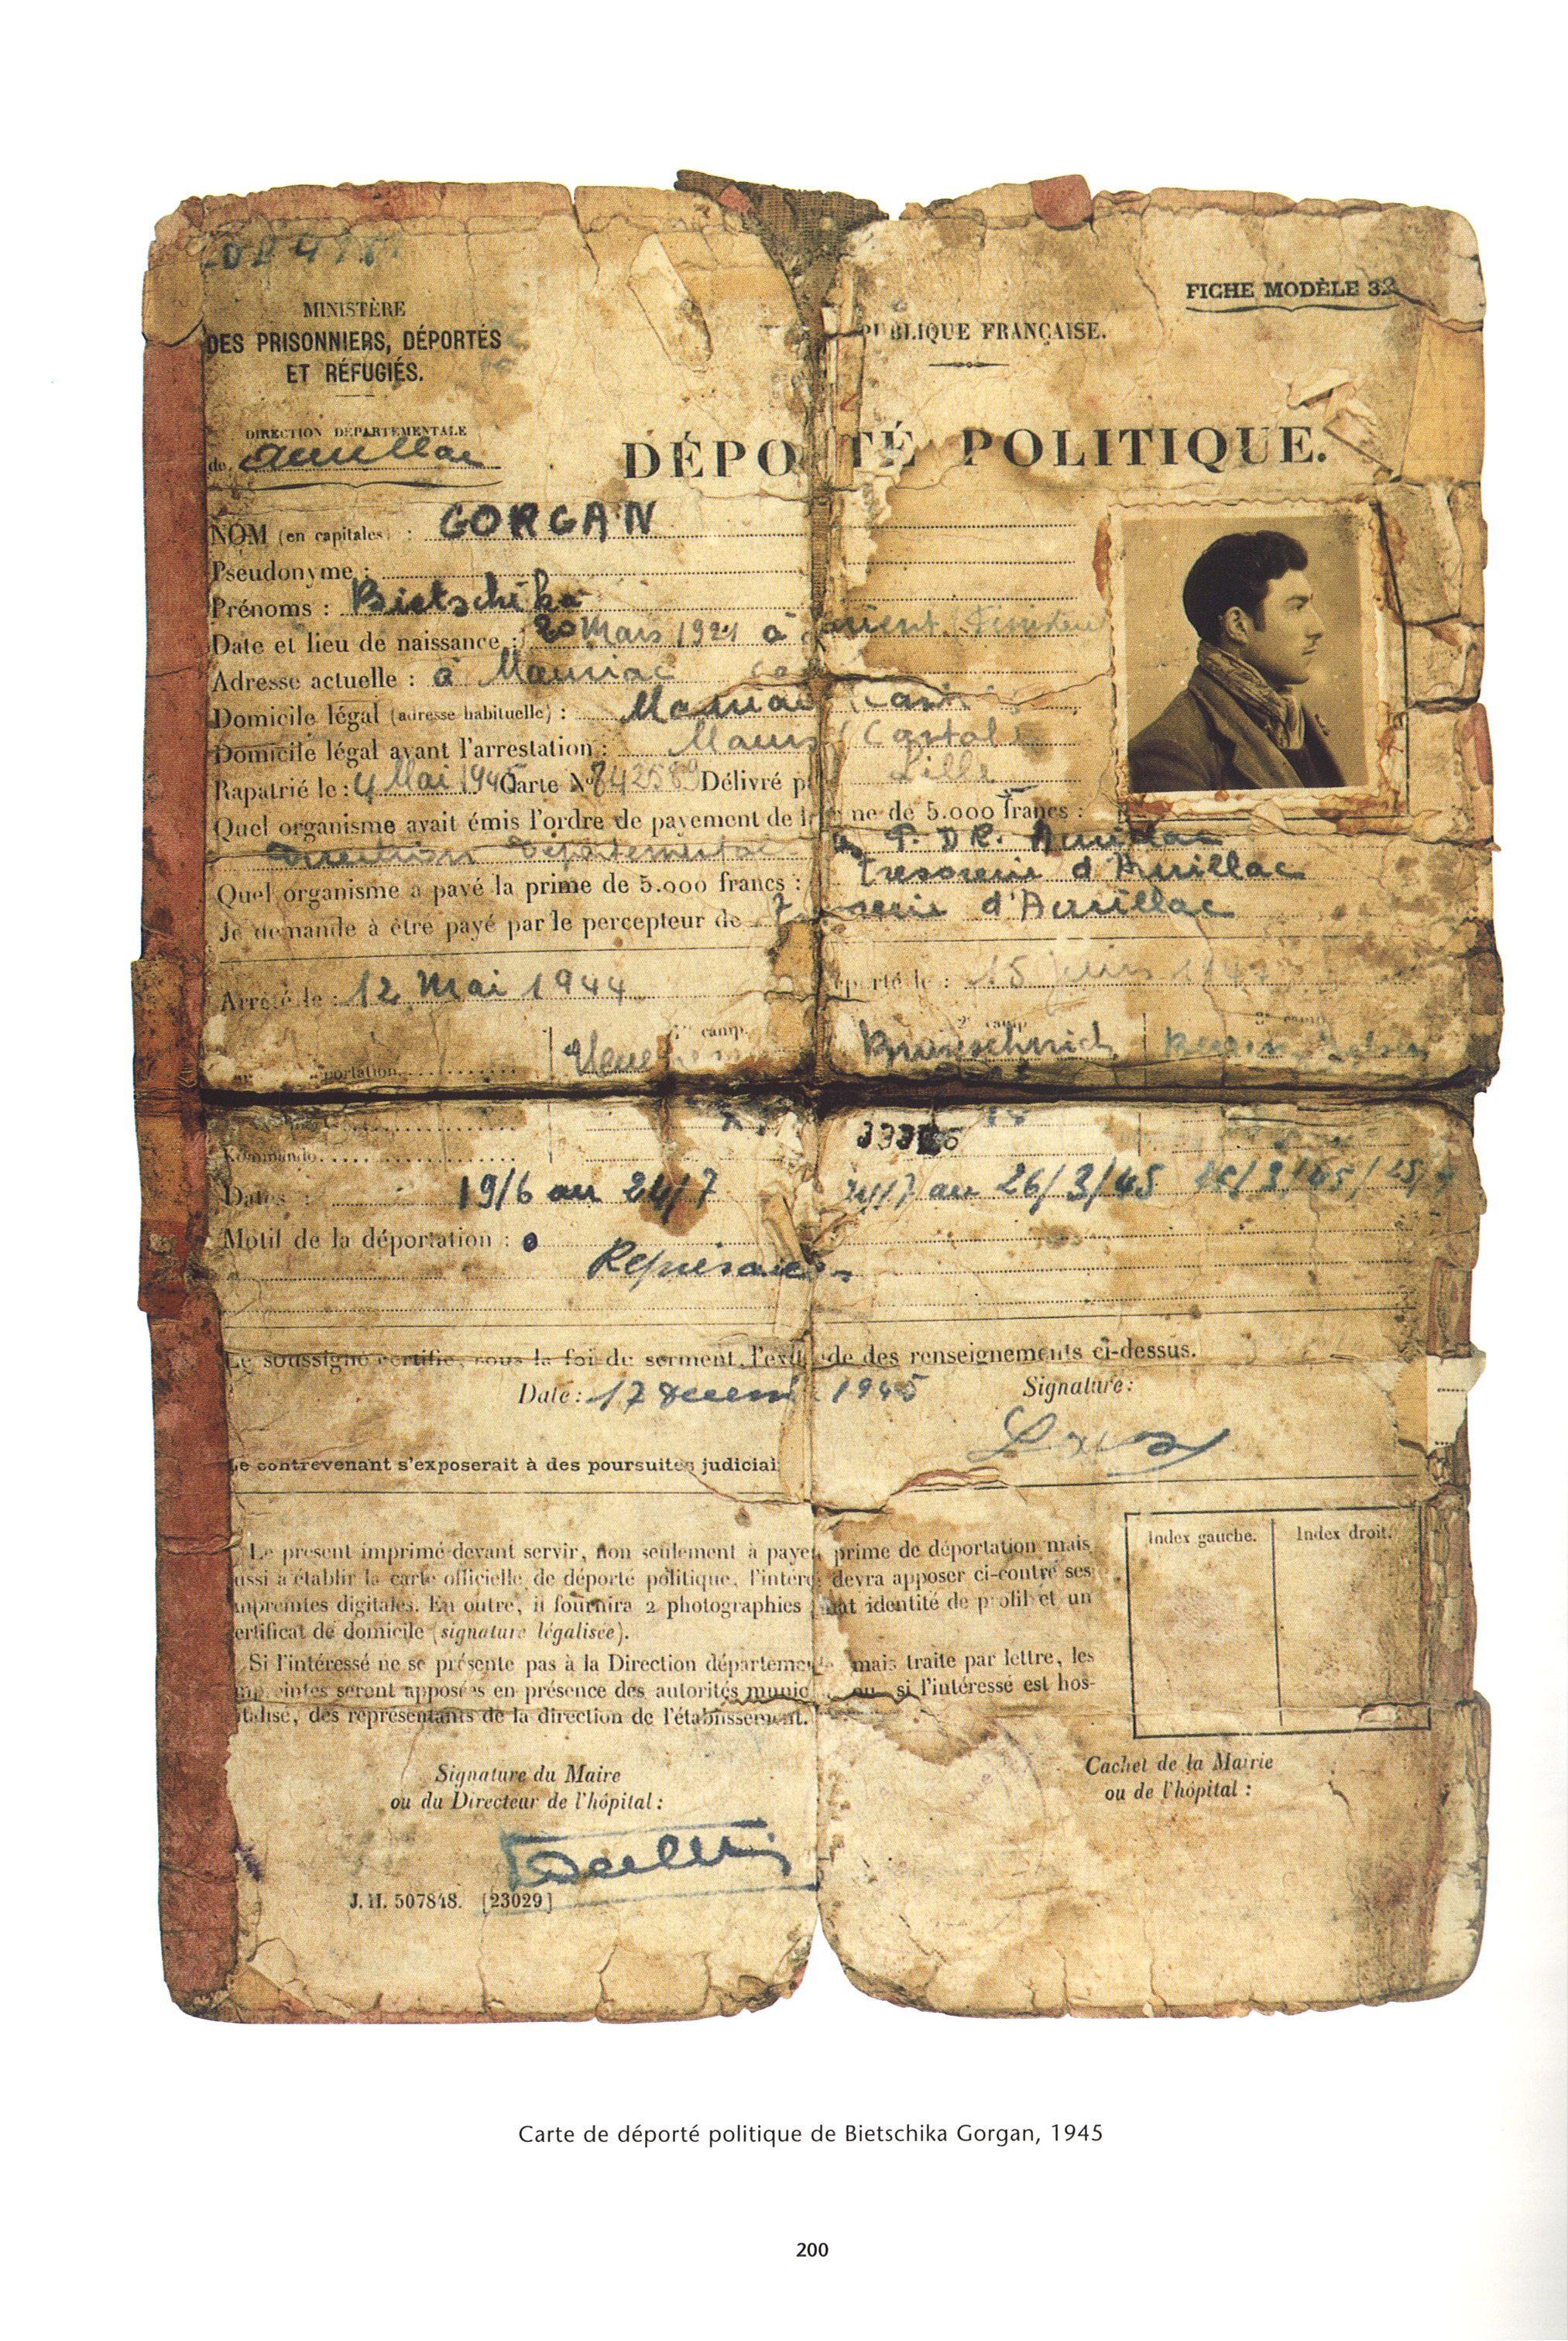 FICHE MODÈLE 32
MINISTÈRE
DES PRISONNIERS, DÉPORTÉS
ET RÉFUGIÉS.
PUBLIQUE FRANÇAISE.
DIRECTION DÉPARTEMENTALE
de Aurillac
DÉPORTÉ POLITIQUE.
NOM (en capitales) : GORGAN
Pseudonyme :
Prénoms : Bietschika
Date et lieu de naissance : 20 Mars 1921 à
Adresse actuelle : à Mauriac
Domicile légal (adresse habituelle) : Mauriac
Domicile légal avant l'arrestation : Maurs (Cantal
Rapatrié le : 4 Mai 1945 Carte N° Délivré Lille
Quel organisme avait émis l'ordre de payement de ne de 5.000 francs :
Direction Départementale P. D R. Aurillac
Quel organisme a payé la prime de 5.000 francs : Tresorerie d'Aurillac
Je demande à être payé par le percepteur de serie d'Aurillac
Arrêté le : 12 Mai 1944 porté le : 15 1944
portation 1er camp. 2e camp 3e camp
Kommando
Dates : 19/6 au 24/7 24/7 au 26/3/45
Motif de la déportation :
Represailles
Le soussigné certifie, sous la foi du serment, l'ex de des renseignements ci-dessus.
Date : 17 1945 Signature :
Le contrevenant s'exposerait à des poursuites judiciai
Le présent imprimé devant servir, non seulement à payer prime de déportation mais
ussi à établir la carte officielle de déporté politique, l'intére devra apposer ci-contre ses
mpreintes digitales. En outre, il fournira 2 photographies identité de profil et un
ertificat de domicile (signature légalisée).
Si l'intéressé ne se présente pas à la Direction départeme mais traite par lettre, les
empreintes seront apposées en présence des autorités munic ou si l'intéressé est hos-
italisé, des représentants de la direction de l'établissement.
Index gauche. Index droit.
Signature du Maire
ou du Directeur de l'hôpital :
Cachet de la Mairie
ou de l'hôpital :
J. H. 507848. [23029]
Carte de déporté politique de Bietschika Gorgan, 1945
200